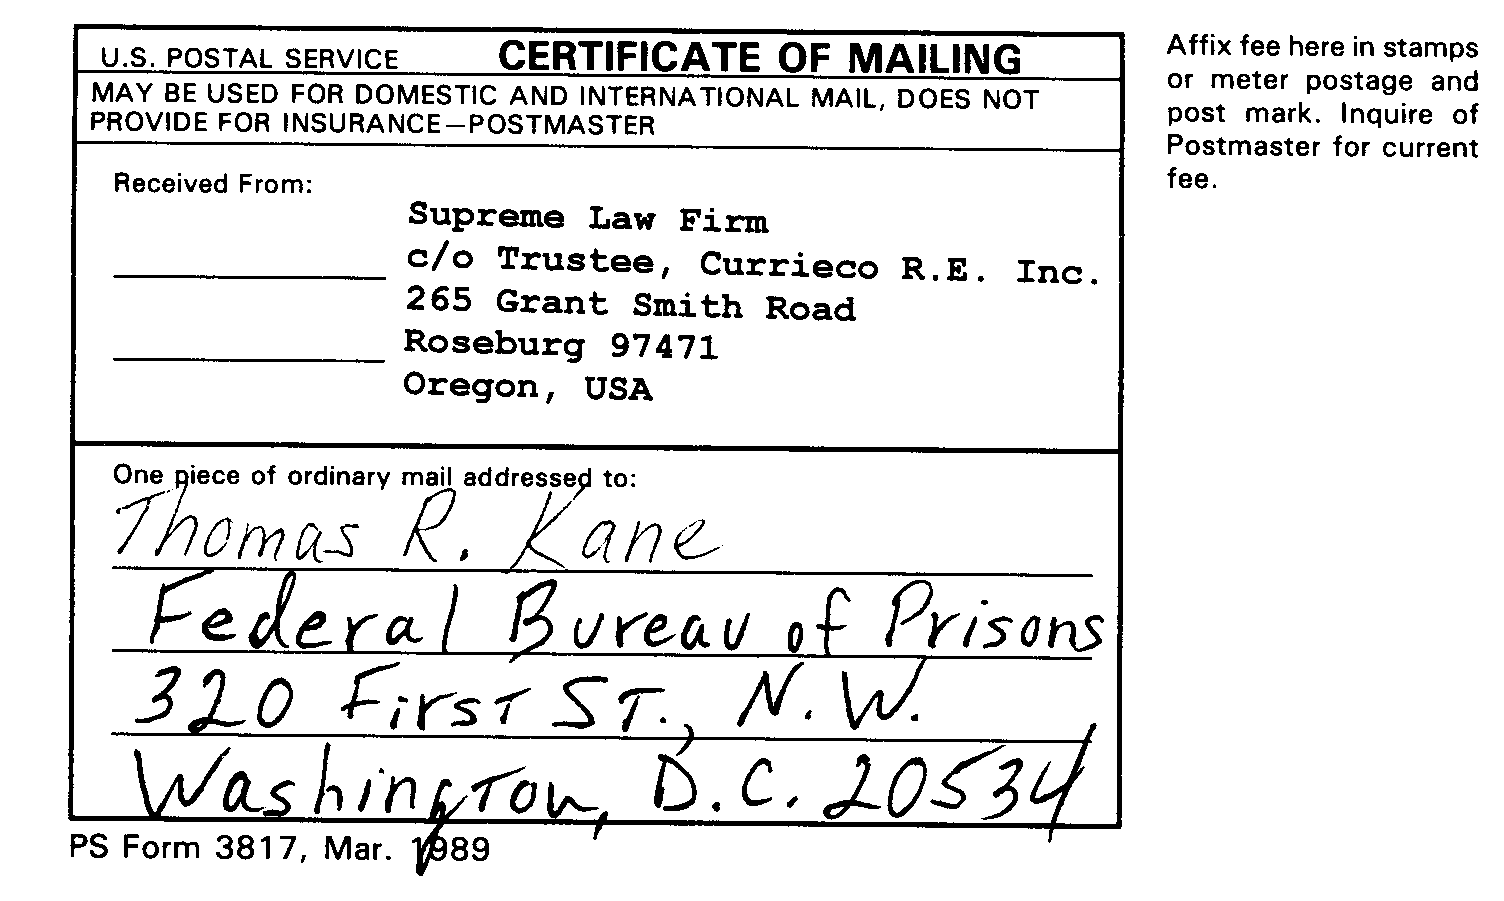 U.S. POSTAL SERVICE CERTIFICATE OF MAILING
MAY BE USED FOR DOMESTIC AND INTERNATIONAL MAIL, DOES NOT
PROVIDE FOR INSURANCE—POSTMASTER
Affix fee here in stamps
or meter postage and
post mark. Inquire of
Postmaster for current
fee.
Received From:
Supreme Law Firm
c/o Trustee, Currieco R.E. Inc.
265 Grant Smith Road
Roseburg 97471
Oregon, USA
One piece of ordinary mail addressed to:
Thomas R. Kane
Federal Bureau of Prisons
320 First St., N.W.
Washington, D.C. 20534
PS Form 3817, Mar. 1989